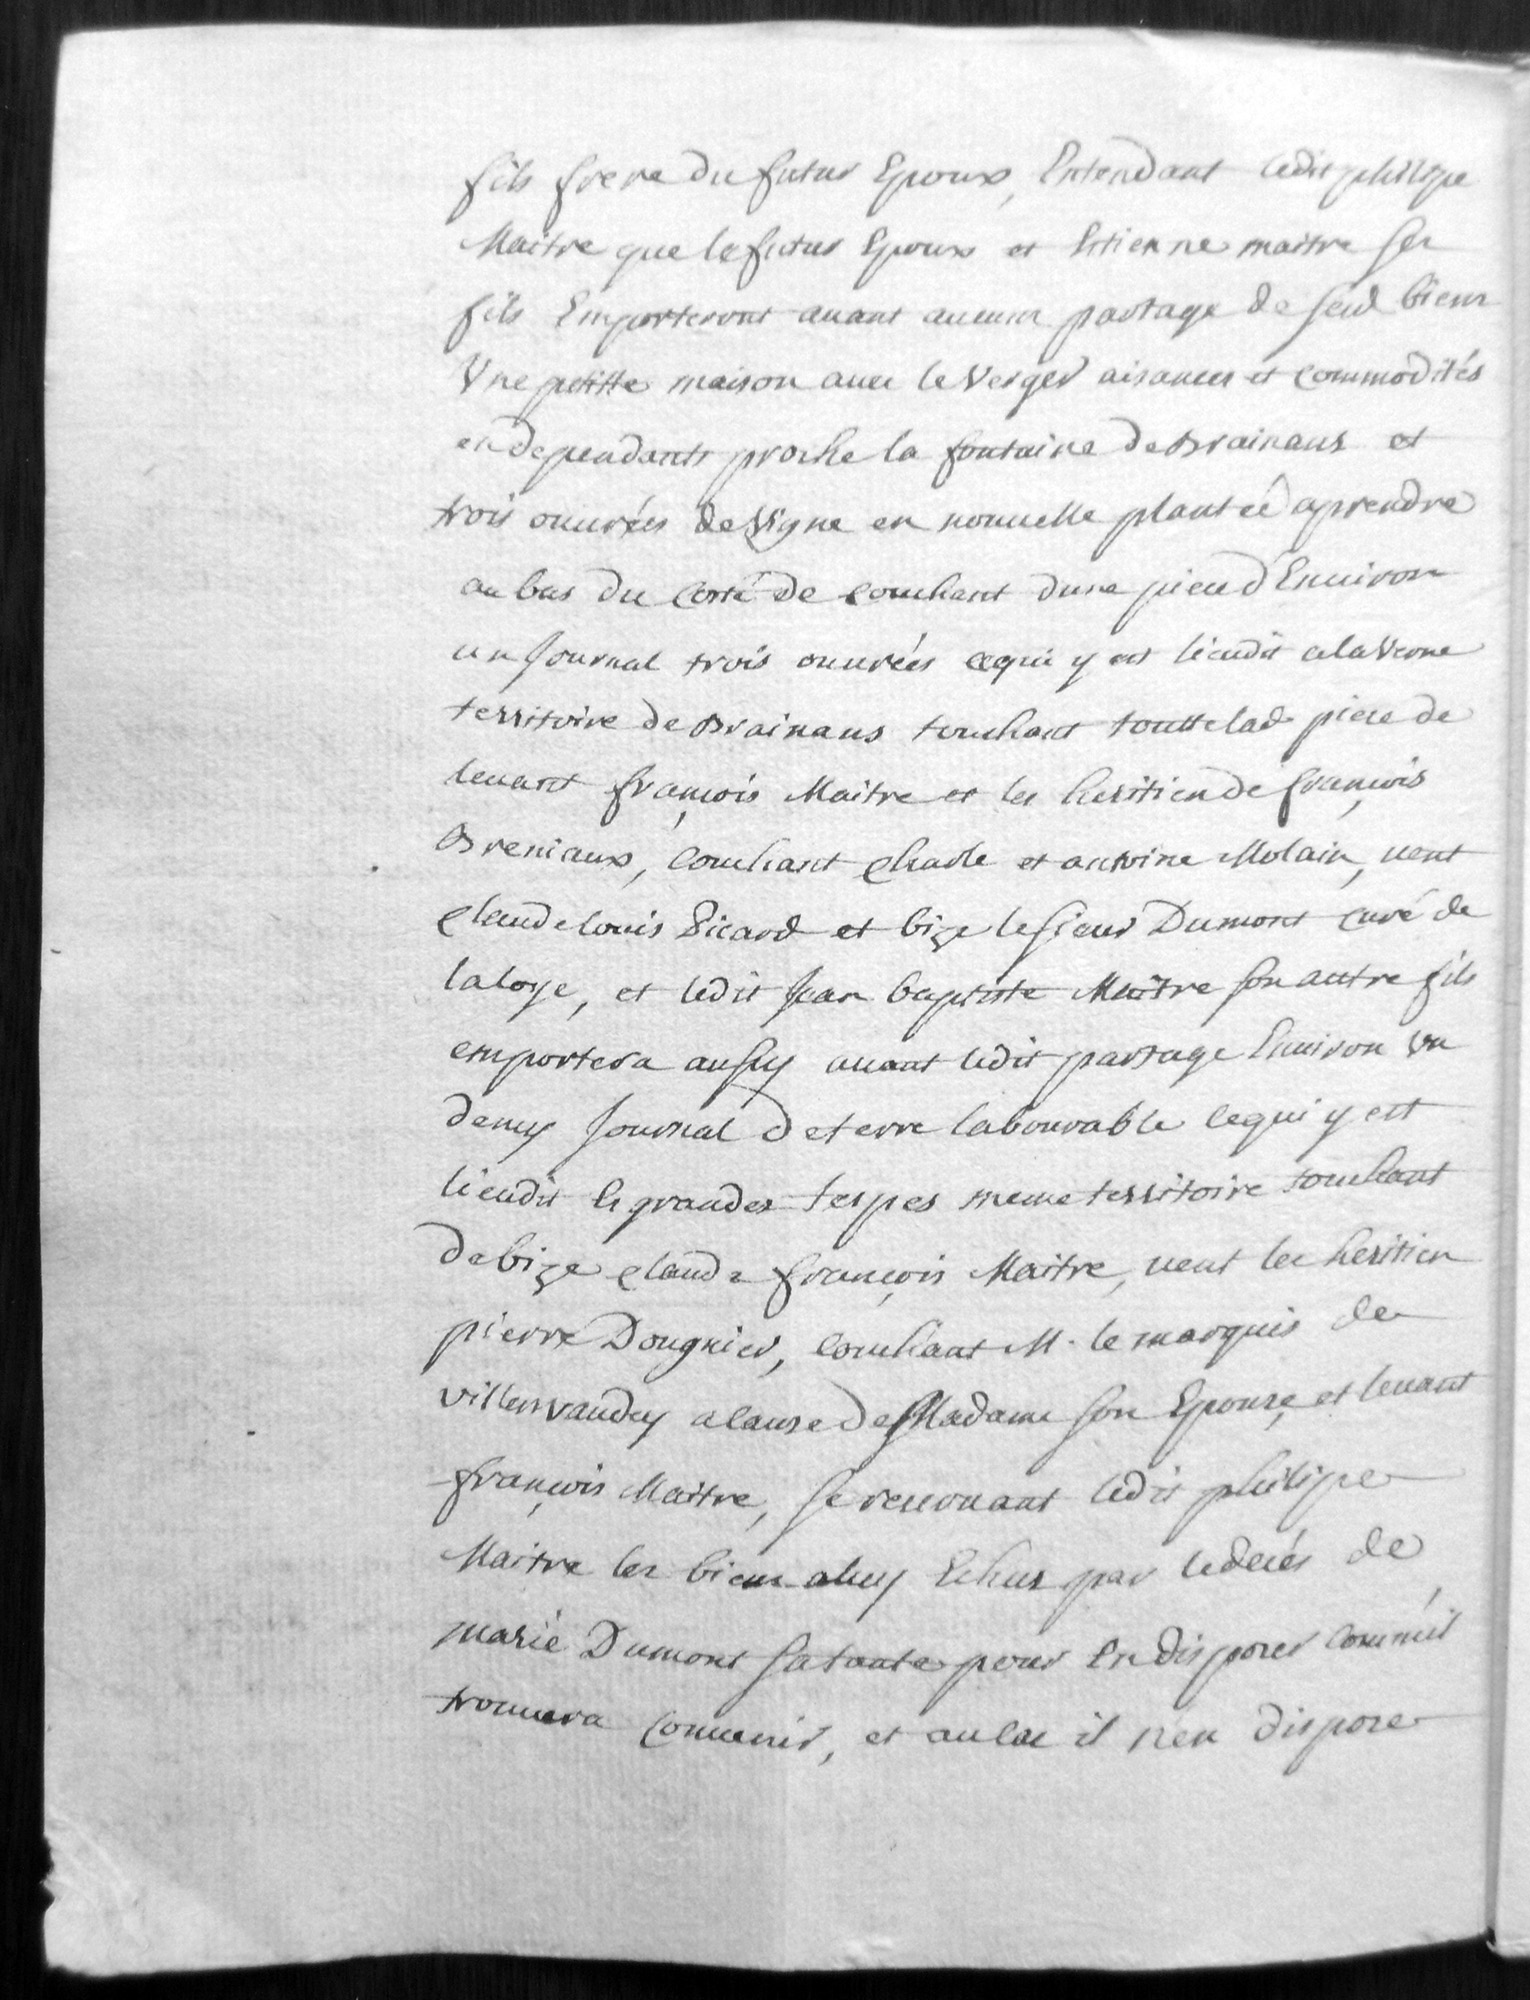 fils frere du futur Epoux, Entendant ledit philipe
Maitre que le futur Epoux et Etienne maitre ses
fils Emporteront auant aucun partage de sesd biens
Vne petitte maison auec le Verger aisances et commodités
en dependants proche la fontaine de Brainans et
trois ouurées de Vigne en nouuelle plantée a prendre
au bas du costé de couchant dune piece d'Enuiron
un Journal trois ouurées cequi y est lieudit a la Verne
territoire de Brainans touchant toutte lad piece de
leuant françois Maitre et les heritiers de françois
Breniaux, couchant Charle et antoine Molain, uent
Claude louis Picard et bize le sieur Dumont curé de
la loye, et ledit Jean baptiste Maitre son autre fils
emportera aussy auant ledit partage Enuiron vn
demy Journal de terre labourable cequi y est
lieudit les grandes terpes meme territoire touchant
de bize Claude françois Maitre, uent les heritiers
pierre Dougnier, couchant M. le marquis de
villersvaudey a cause de Madame son Epouse, et leuant
françois Maitre, se reseruant ledit philipe
Maitre les biens a luy Echus par le decés de
marie Dumont sa tante pour En disposer comme il
trouuera conuenir, et au cas il n'en dispose